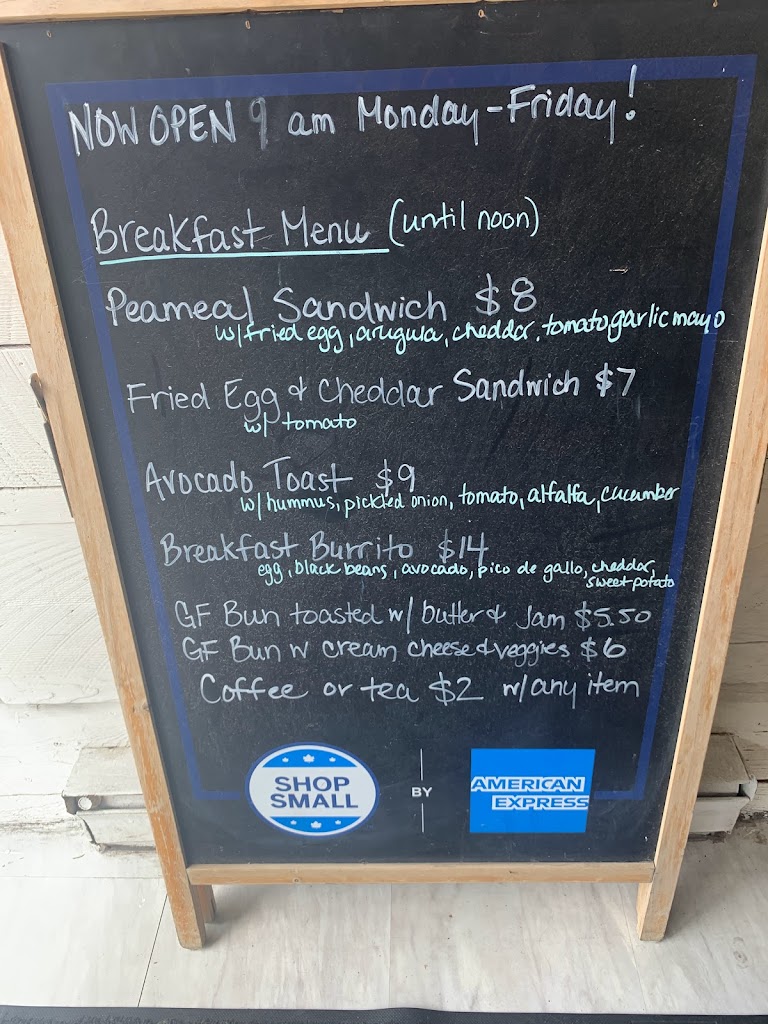 NOW OPEN 9 am Monday-Friday!
Breakfast Menu (until noon)
Peameal Sandwich $8
w/fried egg, arugula, cheddar, tomato, garlic mayo
Fried Egg & Cheddar Sandwich $7
w/ tomato
Avocado Toast $9
w/ hummus, pickled onion, tomato, alfalfa, cucumber
Breakfast Burrito $14
egg, black beans, avocado, pico de gallo, cheddar,
sweet potato
GF Bun toasted w/ butter & Jam $5.50
GF Bun w cream cheese & veggies $6
Coffee or tea $2 w/any item
SHOP
SMALL
BY
AMERICAN
EXPRESS